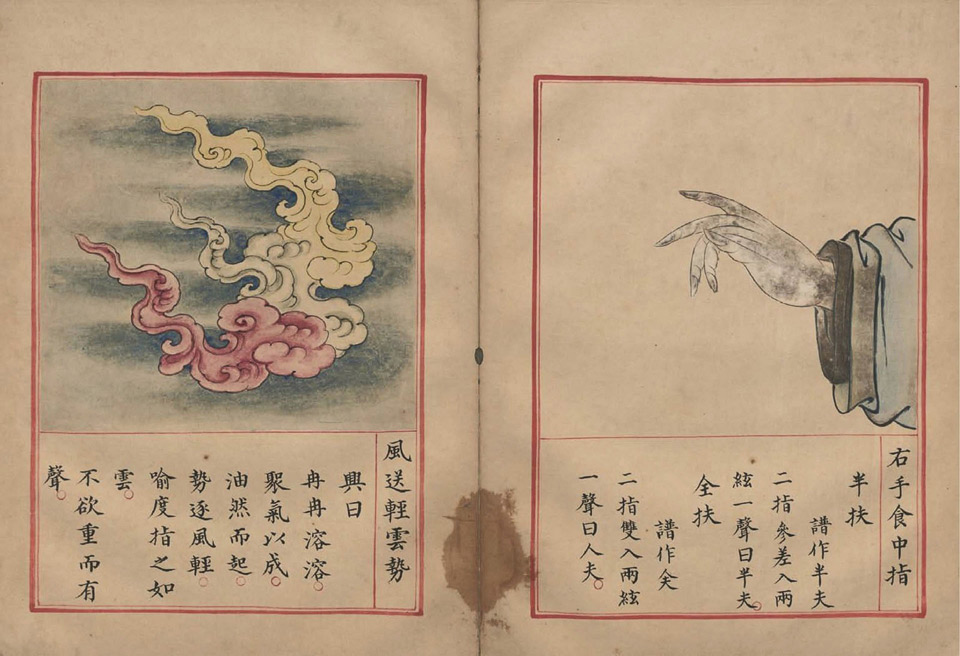 右手食中指
半扶
譜作半夫
二指參差入兩
絃一聲曰半夫。
全扶
譜作
二指雙入兩絃
一聲曰人夫。
風送輕雲勢
興曰
冉冉溶溶。
聚氣以成。
油然而起。
勢逐風輕。
喻度指之如
雲。
不欲重而有
聲。